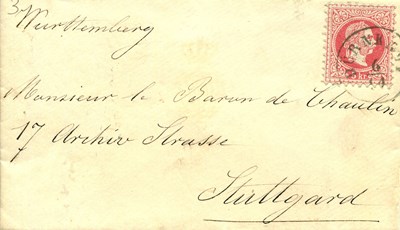 3
Wurttemberg
Monsieur le Baron de Chaulin
17 Archiv Strasse
Stuttgard